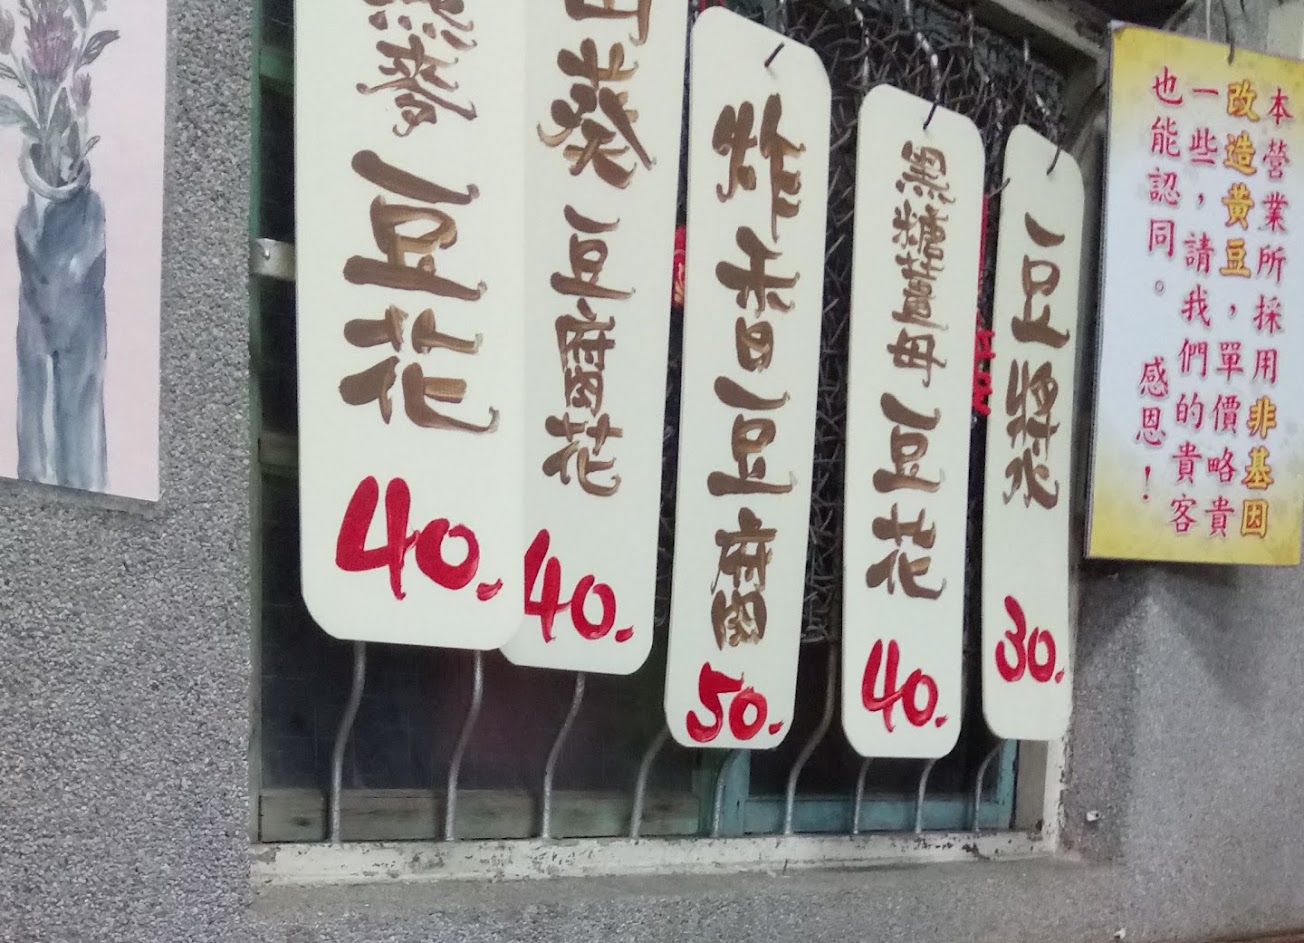 本營業所採用非基因
改造黃豆，單價略貴
一些，請我們的貴客
也能認同。 感恩！
豆漿
30.-
黑糖薑母豆花
40.-
炸香豆腐
50.-
山葵豆腐花
40.-
燕麥豆花
40.-